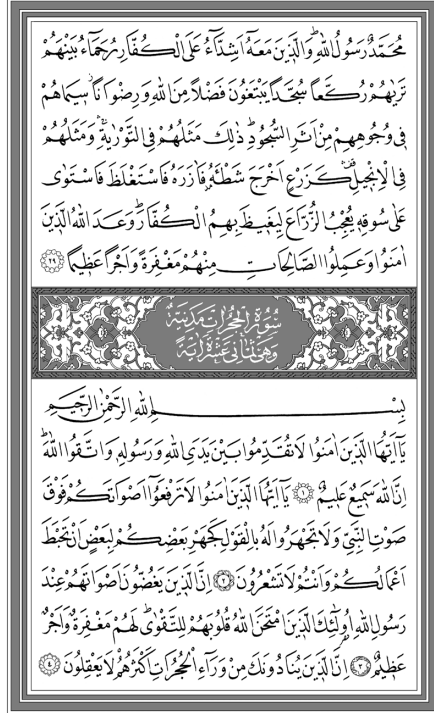 مُحَمَّدٌ رَسُولُ اللّٰهِ وَالَّذ۪ينَ مَعَهُٓ اَشِدَّٓاءُ عَلَى الْكُفَّارِ رُحَمَٓاءُ بَيْنَهُمْ
تَرٰيهُمْ رُكَّعاً سُجَّداً يَبْتَغُونَ فَضْلاً مِنَ اللّٰهِ وَرِضْوَاناًۘ س۪يمَاهُمْ
ف۪ي وُجُوهِهِمْ مِنْ اَثَرِ السُّجُودِۜ ذٰلِكَ مَثَلُهُمْ فِي التَّوْرٰيةِۚ وَمَثَلُهُمْ
فِي الْاِنْج۪يلِ۠ كَزَرْعٍ اَخْرَجَ شَطْـَٔهُ فَاٰزَرَهُ فَاسْتَغْلَظَ فَاسْتَوٰى
عَلٰى سُوقِه۪ يُعْجِبُ الزُّرَّاعَ لِيَغ۪يظَ بِهِمُ الْكُفَّارَۜ وَعَدَ اللّٰهُ الَّذ۪ينَ
اٰمَنُوا وَعَمِلُوا الصَّالِحَاتِ مِنْهُمْ مَغْفِرَةً وَاَجْراً عَظ۪يماً ﴿٢٩﴾
سُورَةُ الْحُجُرَاتِ مَدَنِيَّةٌ
وَهِيَ ثَمَانِيَ عَشْرَةَ اٰيَةً
بِسْمِ اللّٰهِ الرَّحْمٰنِ الرَّح۪يمِ
يَٓا اَيُّهَا الَّذ۪ينَ اٰمَنُوا لَا تُقَدِّمُوا بَيْنَ يَدَيِ اللّٰهِ وَرَسُولِه۪ وَاتَّقُوا اللّٰهَۜ
اِنَّ اللّٰهَ سَم۪يعٌ عَل۪يمٌ ﴿١﴾ يَٓا اَيُّهَا الَّذ۪ينَ اٰمَنُوا لَا تَرْفَعُٓوا اَصْوَاتَكُمْ فَوْقَ
صَوْتِ النَّبِيِّ وَلَا تَجْهَرُوا لَهُ بِالْقَوْلِ كَجَهْرِ بَعْضِكُمْ لِبَعْضٍ اَنْ تَحْبَطَ
اَعْمَالُكُمْ وَاَنْتُمْ لَا تَشْعُرُونَ ﴿٢﴾ اِنَّ الَّذ۪ينَ يَغُضُّونَ اَصْوَاتَهُمْ عِنْدَ
رَسُولِ اللّٰهِ اُو۬لٰٓئِكَ الَّذ۪ينَ امْتَحَنَ اللّٰهُ قُلُوبَهُمْ لِلتَّقْوٰىۜ لَهُمْ مَغْفِرَةٌ وَاَجْرٌ
عَظ۪يمٌ ﴿٣﴾ اِنَّ الَّذ۪ينَ يُنَادُونَكَ مِنْ وَرَٓاءِ الْحُجُرَاتِ اَكْثَرُهُمْ لَا يَعْقِلُونَ ﴿٤﴾